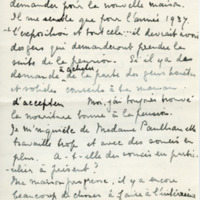 demander pour la nouvelle maison.
Il me semble que pour l'année 1937.
L'exposition et tout cela — il devrait avoir
des gens qui demanderont prendre la
suite de la pension. S'il y a de
demande à acheter de la part des gens
et solides conseils à la maman
d'accepter. Moi, j'ai toujours trouvé
la nourriture bonne à la pension.
Je m'inquiète de Madame Paulhan elle
travaille trop et avec des soucis en
plus. A-t-elle des soucis en parti-
culier à présent?
Ma maison progresse, il y a encore
beaucoup de choses à faire à l'intérieur